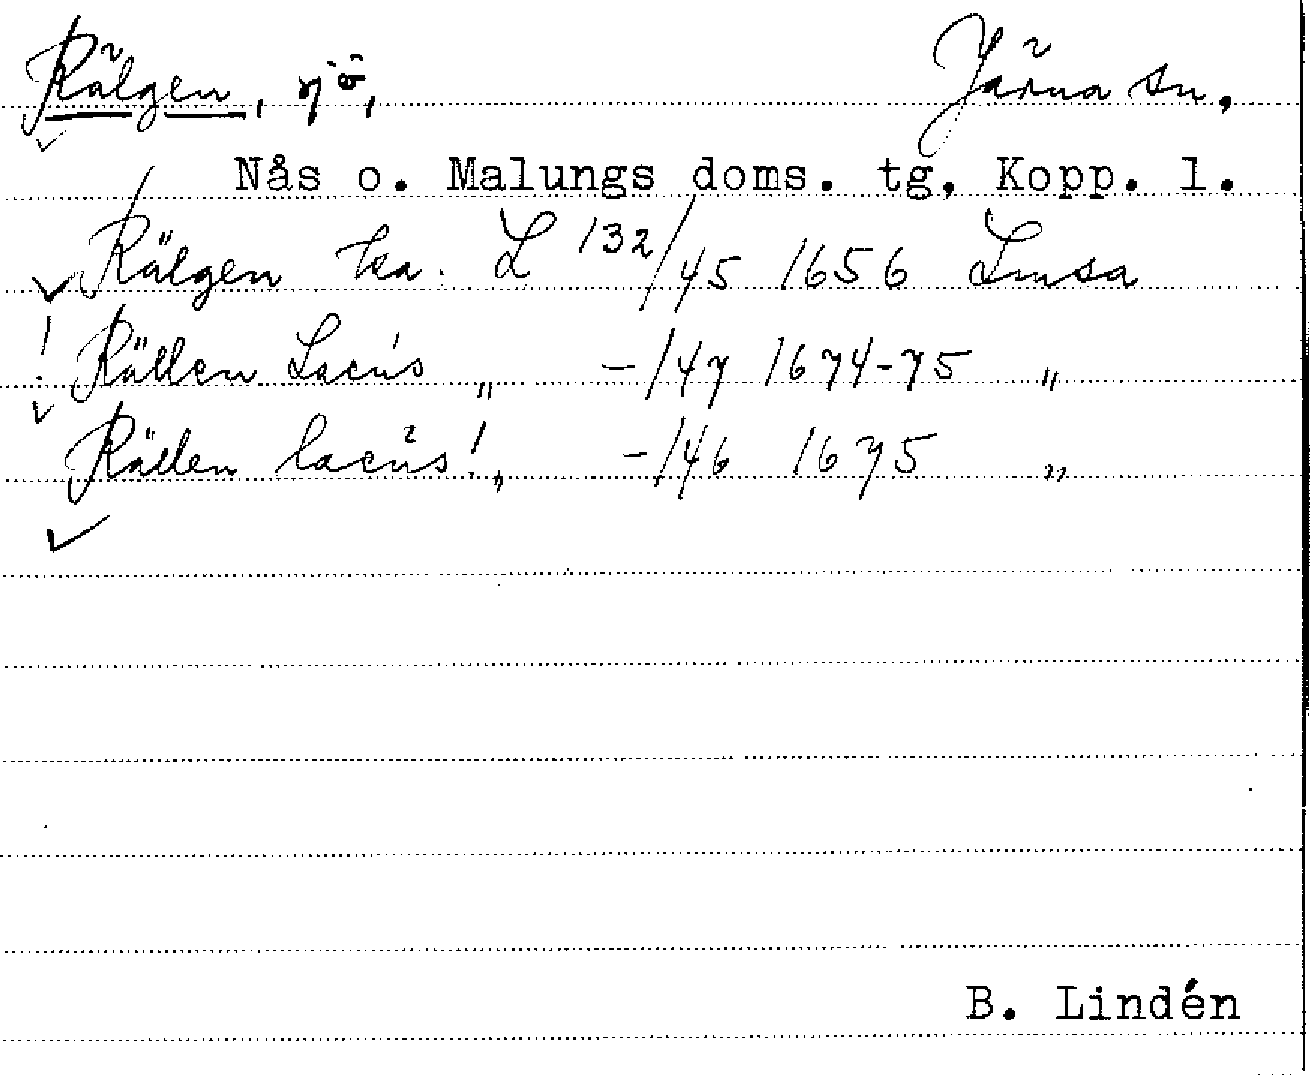 Rälgen, sjö, Järna sn.
Nås o. Malungs doms. tg, Kopp. l.
Rälgen ka. L 132/45 1656 Lmsa
! Rällen Lacus „ -/47 1674-75 „
Rällen lacus! „ -/46 1675 „
B. Lindén